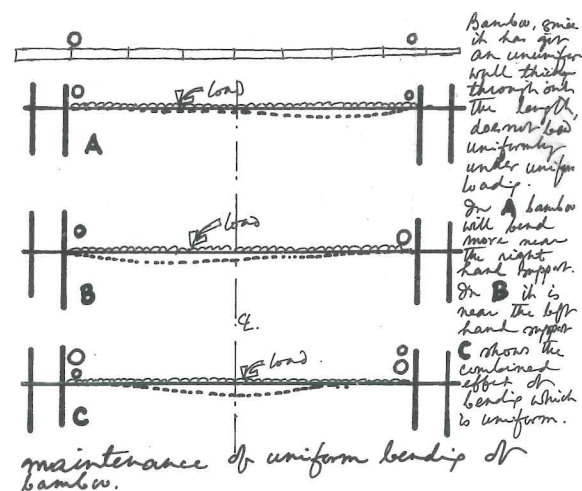 Bamboo, since
it has got
an ununiform
wall thickness
through out
the length,
does not bend
uniformly
under uniform
loading.
In A bamboo
will bend
more near
the right
hand support.
In B it is
near the left
hand support
C shows the
combined
effect of
bending which
is uniform.
load
A
load
B
C.L.
load
C
maintenance of uniform bending of
bamboo.